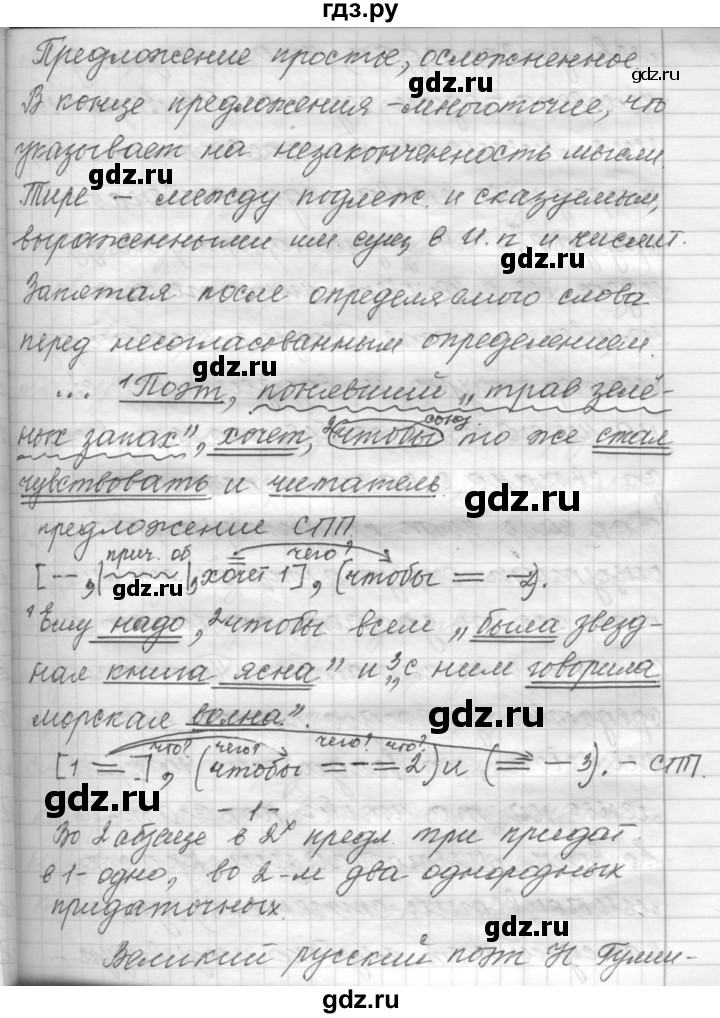 гдз.ру
Предложение простое, осложненное
gdz.ru
gdz.ru
В конце предложения – многоточие, что
указывает на незаконченность мысли.
gdz.ru
Тире – между подлеж. и сказуемым,
выраженными им. сущ в И. п. и числит.
gdz.ru
Запятая после определяемого слова
перед несогласованным определением.
gdz.ru
... ¹Поэт, понявший „трав зелё-
союз
ных запах", хочет, ²чтобы то же стал
чувствовать и читатель.
gdz.ru
предложение СПП.
прич. об чего?
[--, | |, хочет 1], (чтобы = – 2).
gdz.ru
¹Ему надо, ²чтобы всем „была звезд-
ная книга ясна" и ³„с ним говорила
морская волна".
gdz.ru
что? чего? чего? что?
[1 = ], (чтобы = – = 2) и (= – 3). – СПП.
gdz.ru
- 1 -
Во 2 абзаце в 2х предл. три придат.
в 1- одно, во 2-м два однородных
придаточных.
gdz.ru
Великий русский поэт Н. Гуми-
gdz.ru